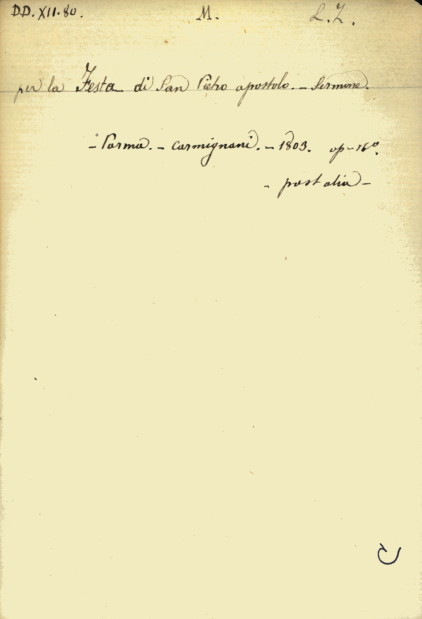 DD. XII. 80. M. L. Z.
per la Festa di San Pietro apostolo. - Sermone.
- Parma. - Carmignani. - 1803. op-16°.
- post alia -